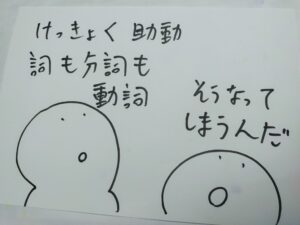 けっきょく助動
詞も分詞も
動詞
そうなって
しまうんだ